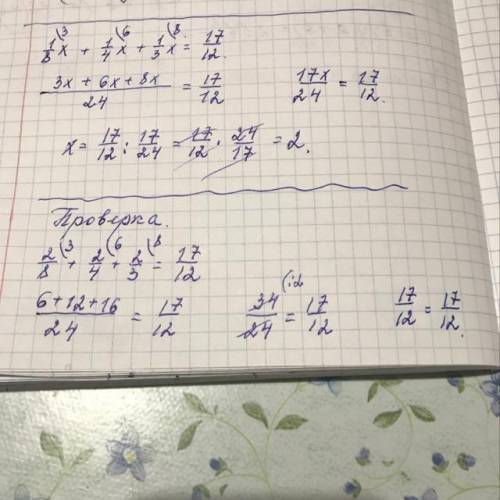 1/8^(3 x + 1/4^(6 x + 1/3^(8 x = 17/12.
(3x + 6x + 8x)/24 = 17/12    17x/24 = 17/12.
x = 17/12 : 17/24 = 17/12 · 24/17 = 2.
Проверка.
2/8^(3 + 2/4^(6 + 2/3^(8 = 17/12
(6+12+16)/24 = 17/12    34/24 = 17/12    17/12 = 17/12.